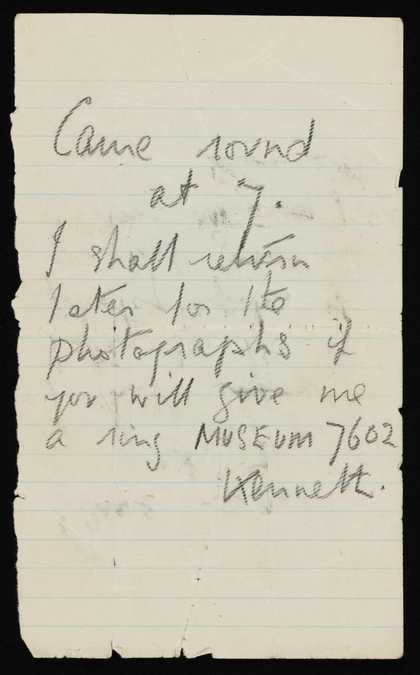 Came round
at 7.
I shall return
later for the
photographs if
you will give me
a ring MUSEUM 7602
Kenneth.